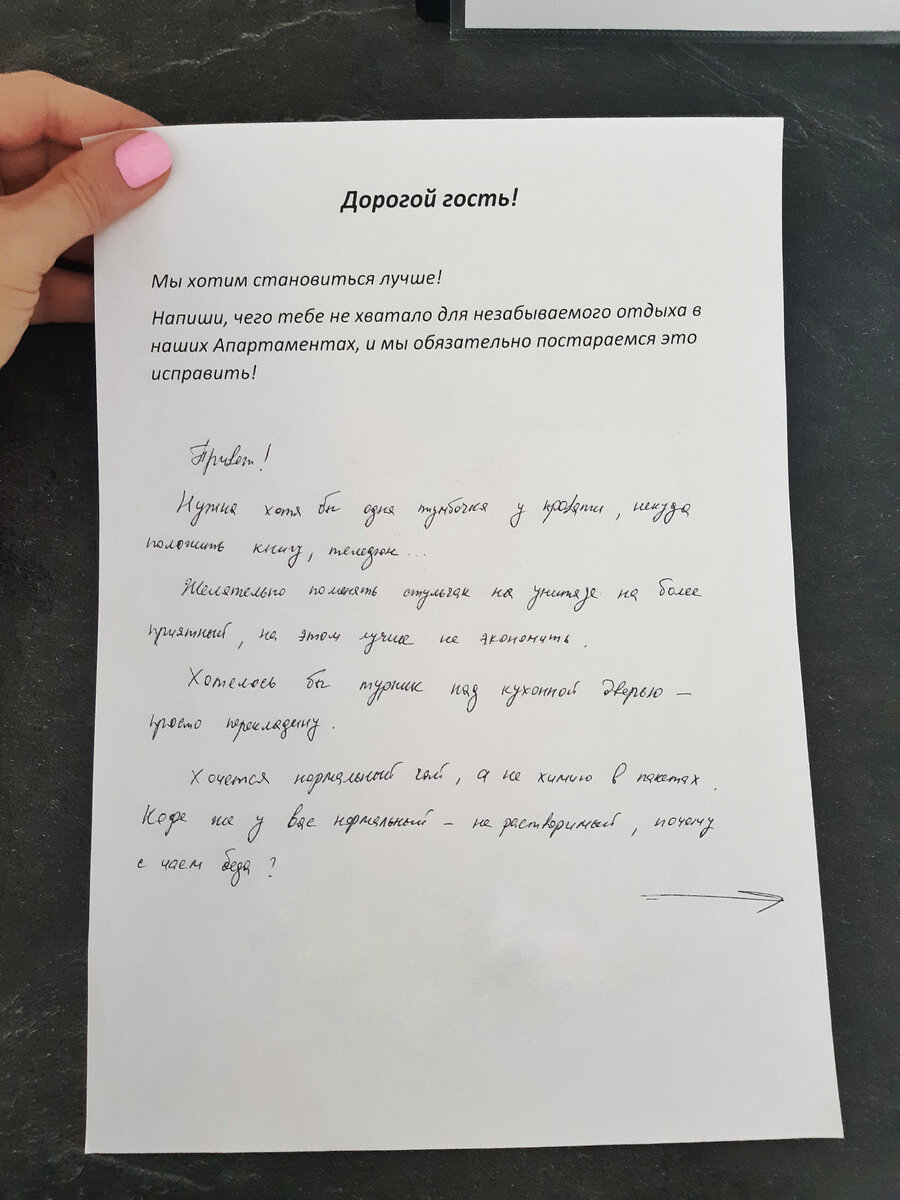 Дорогой гость!
Мы хотим становиться лучше!
Напиши, чего тебе не хватало для незабываемого отдыха в
наших Апартаментах, и мы обязательно постараемся это
исправить!
Привет!
Нужна хотя бы одна тумбочка у кровати, некуда
положить книгу, телефон...
Желательно поменять стульчак на унитазе на более
приятный, на этом лучше не экономить.
Хотелось бы турник над кухонной дверью –
просто перекладину.
Хочется нормальный чай, а не химию в пакетах.
Кофе же у вас нормальный – не растворимый, почему
с чаем беда?